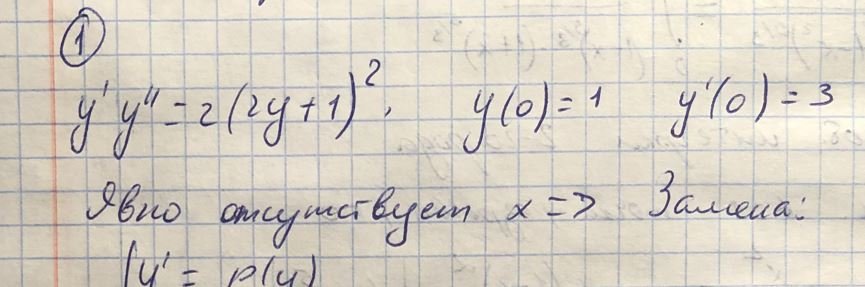 1
y' y'' = 2(2y+1)², y(0) = 1 y'(0) = 3
Явно отсутствует x => Замена:
{y' = p(y)